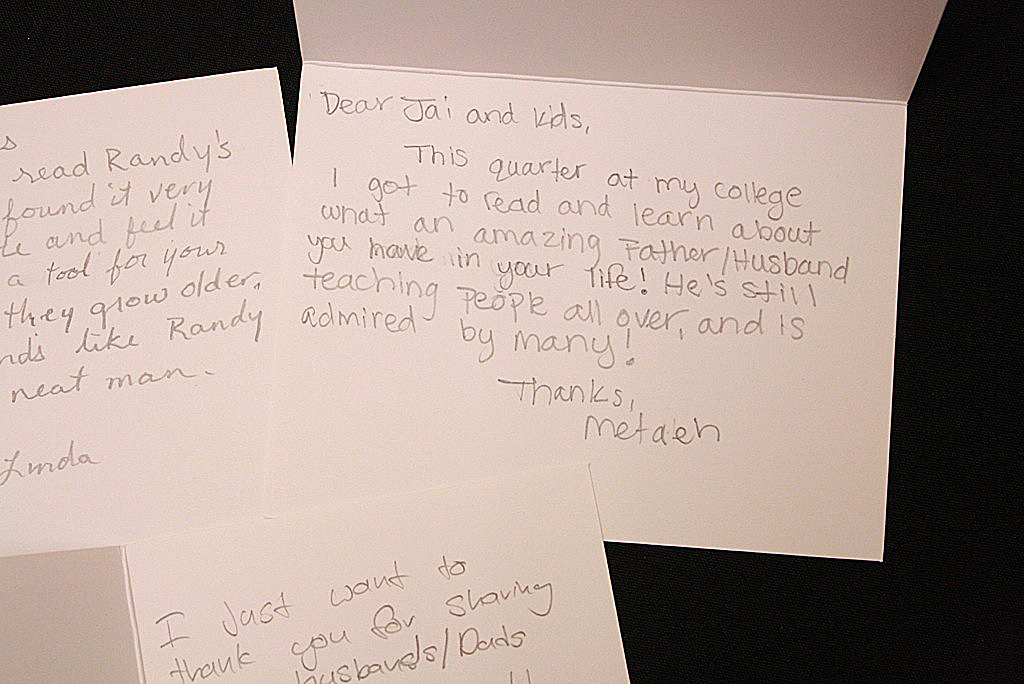 read Randy's
found it very
and feel it
a tool for your
they grow older.
like Randy
neat man.
Linda
Dear Jai and kids,
This quarter at my college
I got to read and learn about
what an amazing Father/Husband
you have in your life! He's still
teaching people all over, and is
admired by many!
Thanks,
Metaeh
I just want to
thank you for sharing
husbands/Dads